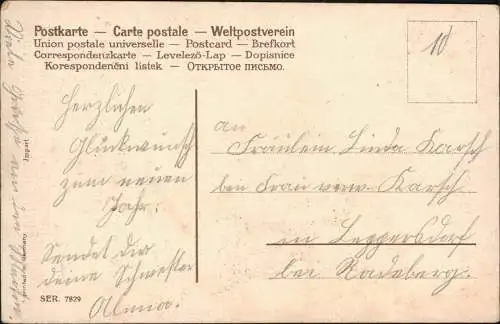 Postkarte — Carte postale — Weltpostverein
Union postale universelle — Postcard — Brefkort
Correspondenzkarte — Levelező-Lap — Dopisnice
Korespondenčni listek — ОТКРЫТОЕ ПИСЬМО.
10
Herzlichen
Glükwunsch
zum neuen
Jahr.
Sendet dir
deine Schwester
Alma.
an
Fräulein Linda Karsch
bei Frau verw. Karsch
in Leppersdorf
bei Radeberg.
SER. 7829
Viele Grüße